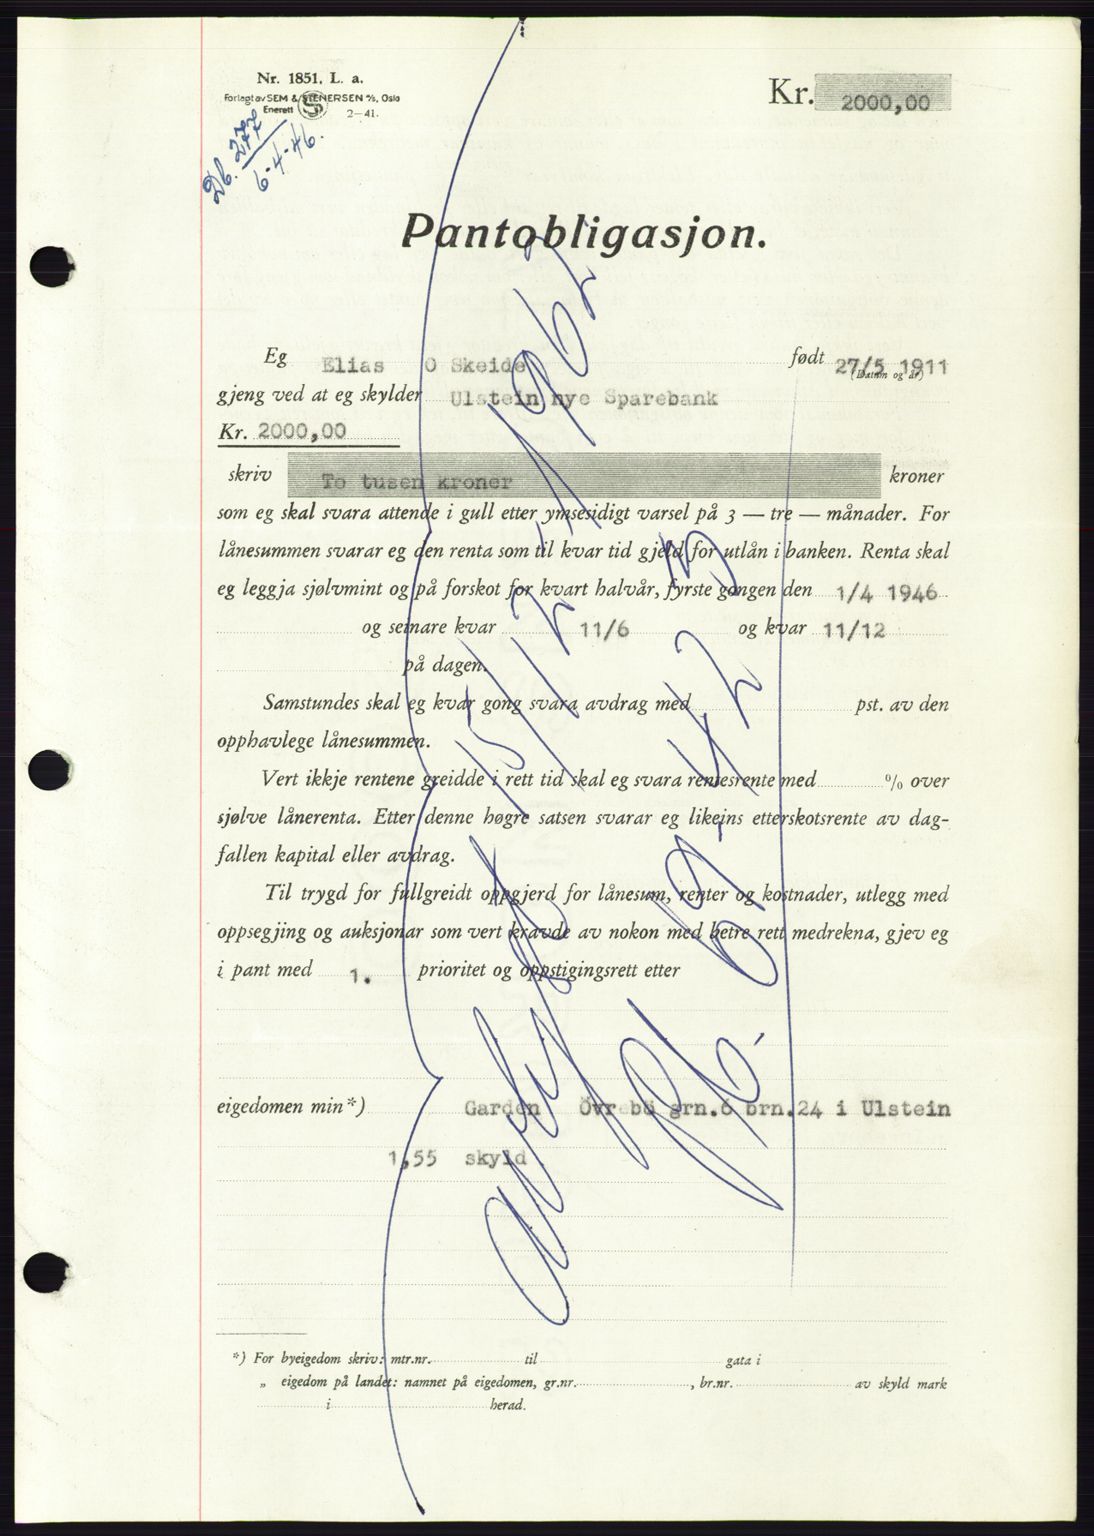 Nr. 1851, L. a.
Forlagt av SEM & STENERSEN A/S, Oslo
Enerett
2—41.
Db. 277
6-4-46.
Kr. 2000,00
Pantobligasjon.
Eg Elias O Skeide født 27/5 1911
(Datum og år)
gjeng ved at eg skylder Ulstein nye Sparebank
Kr. 2000,00
skriv To tusen kroner kroner
som eg skal svara attende i gull etter ymsesidigt varsel på 3 — tre — månader. For
lånesummen svarar eg den renta som til kvar tid gjeld for utlån i banken. Renta skal
eg leggja sjølvmint og på forskot for kvart halvår, fyrste gongen den 1/4 1946
og seinare kvar 11/6 og kvar 11/12
på dagen.
Samstundes skal eg kvar gong svara avdrag med pst. av den
opphavlege lånesummen.
Vert ikkje rentene greidde i rett tid skal eg svara rentesrente med % over
sjølve lånerenta. Etter denne høgre satsen svarar eg likeins etterskotsrente av dag-
fallen kapital eller avdrag.
Til trygd for fullgreidt oppgjerd for lånesum, renter og kostnader, utlegg med
oppsegjing og auksjonar som vert kravde av nokon med betre rett medrekna, gjev eg
i pant med 1. prioritet og oppstigingsrett etter
eigedomen min*) Garden Övrebö grn.6 brn.24 i Ulstein
1,55 skyld
*) For byeigedom skriv: mtr.nr. til gata i
„ eigedom på landet: namnet på eigedomen, gr.nr. , br.nr. av skyld mark
i herad.
avlyst 15/12 1962